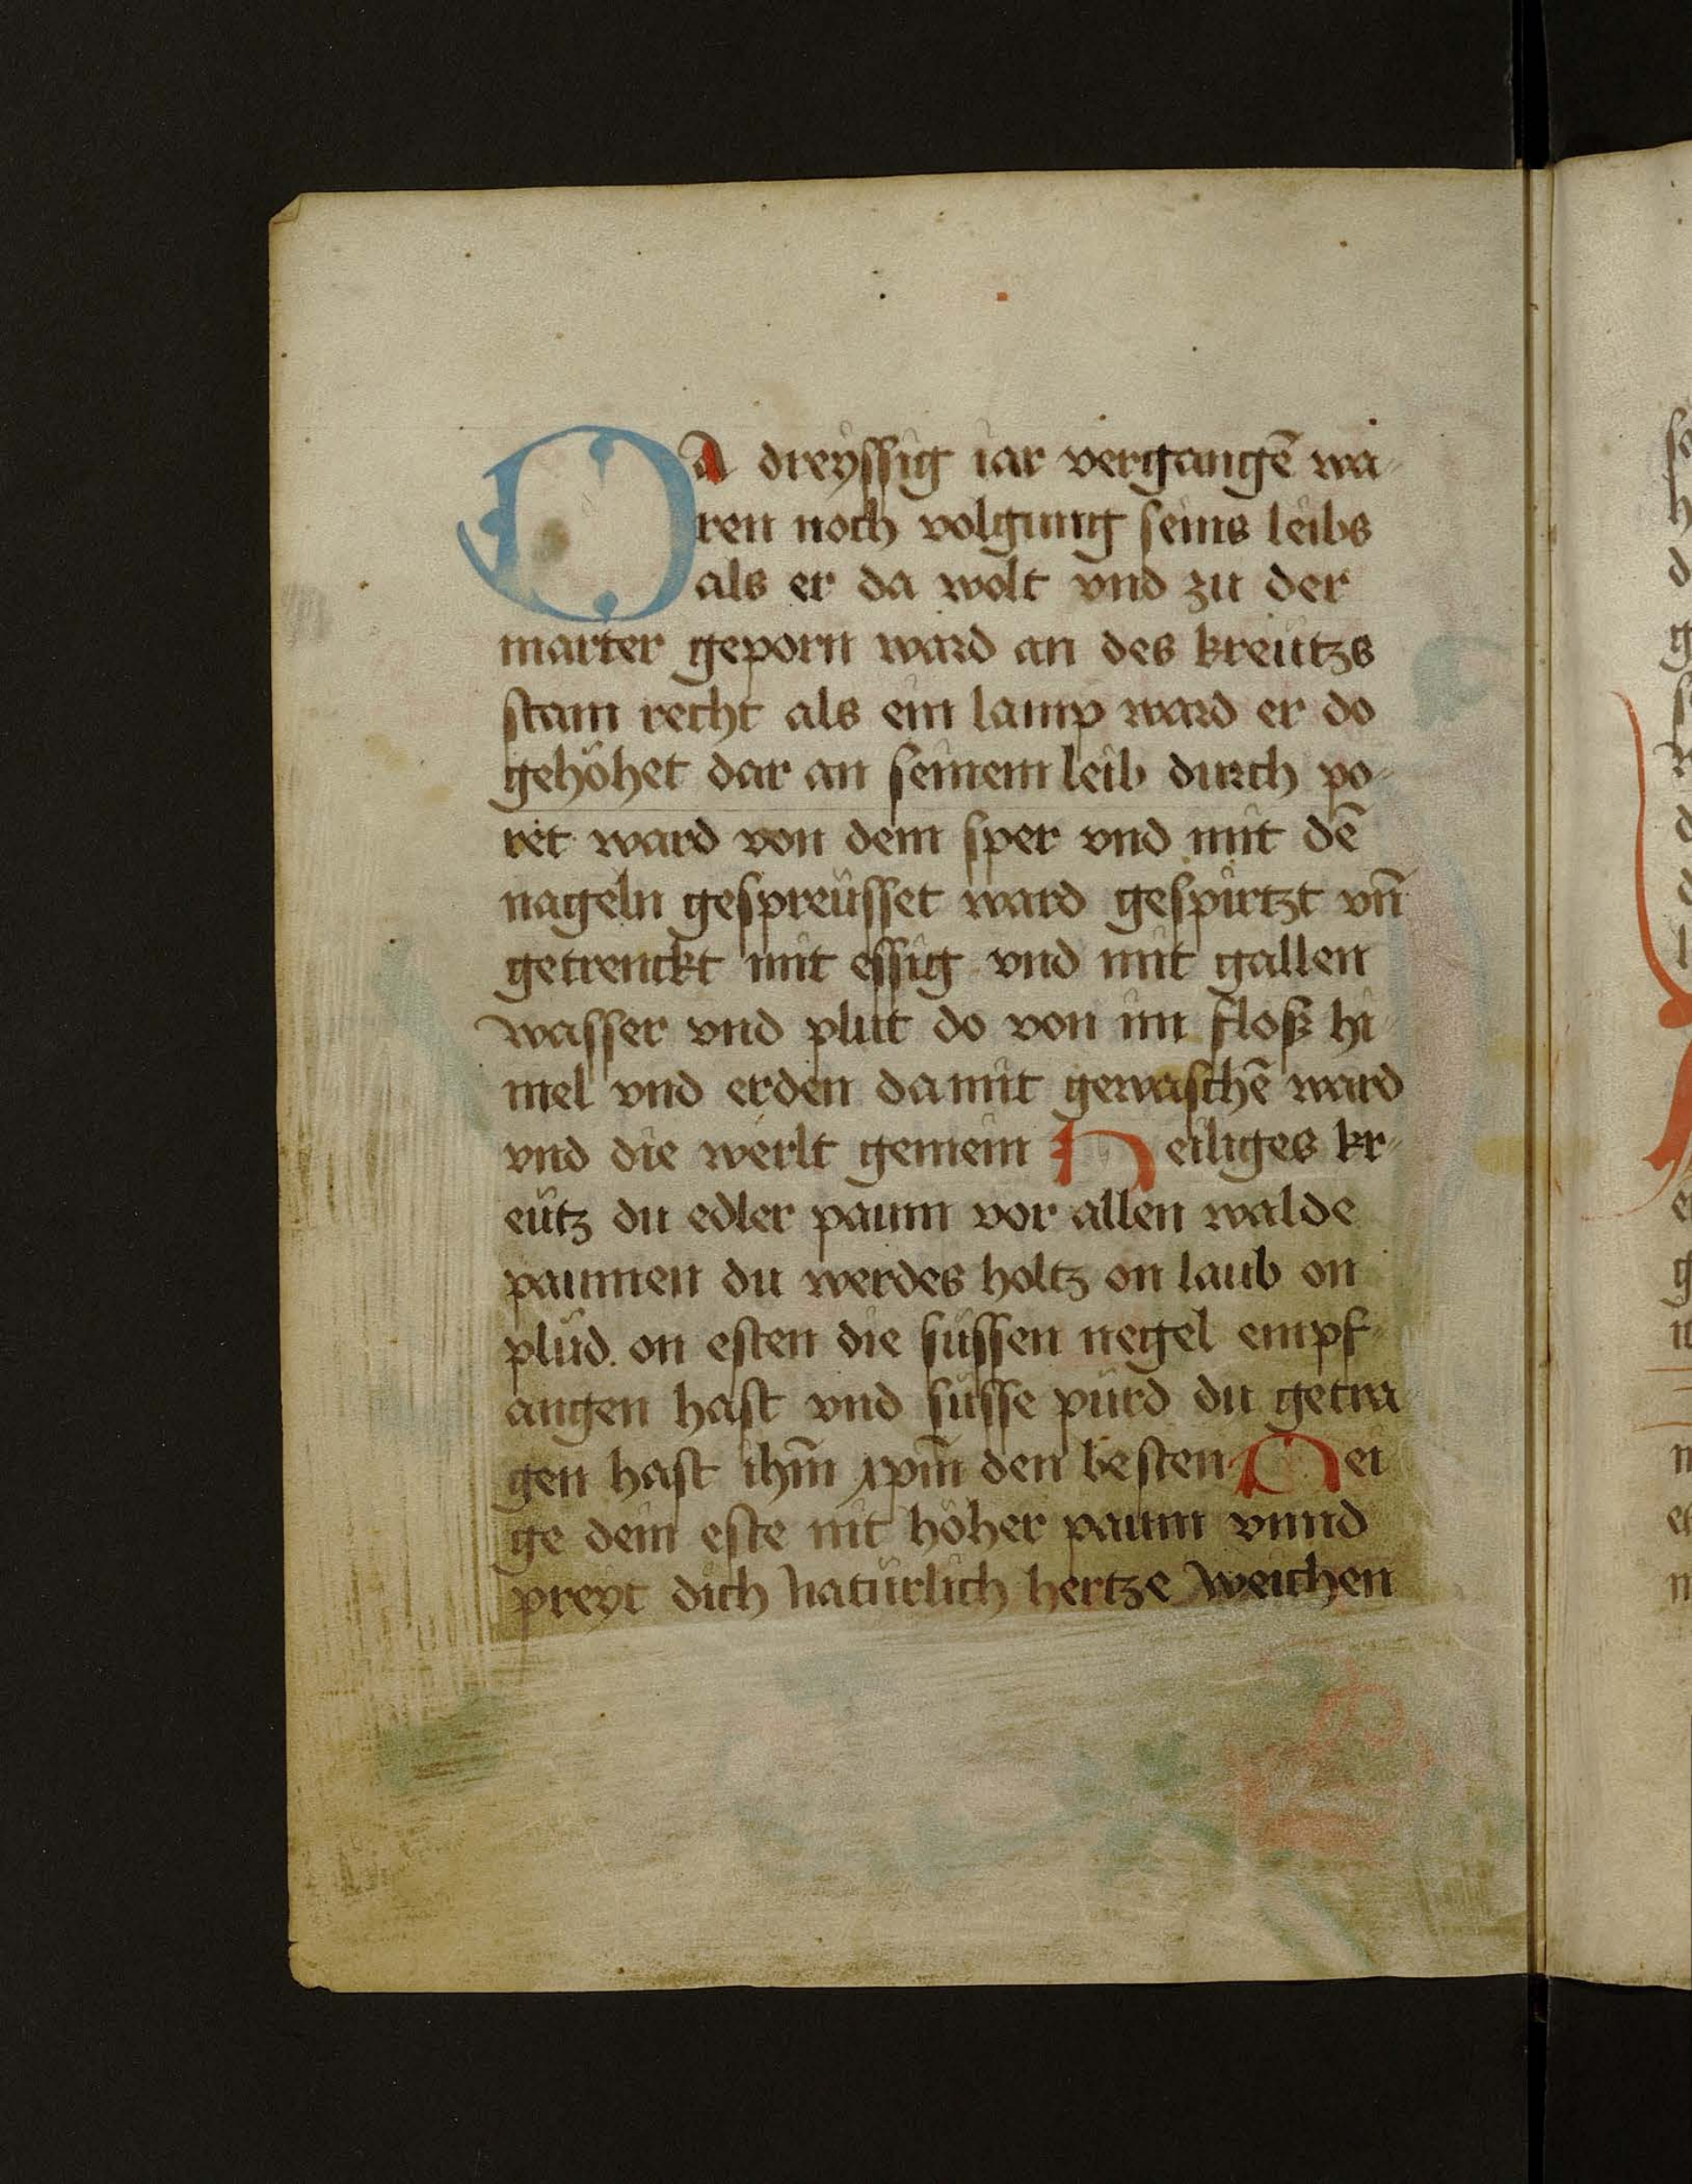 Da dreyssig iar vergangē wa-
ren noch volgung seins leibs
als er da wolt vnd zu der
marter geporn ward an des kreutzs
stam recht als ein lamp ward er do
gehöhet dar an seinem leib durch po-
ret ward von dem sper vnd mit dē
nageln gespreüsset ward gespürtzt vn̄
getrenckt mit essig vnd mit gallen
wasser vnd plut do von im floß hi-
mel vnd erden da mit gewaschē ward
vnd die werlt gemein Heiliges kr-
eütz du edler paum vor allen walde
paumen du werdes holtz on laub on
plüd. on esten die süssen negel empf-
angen hast vnd süsse pürd du getra-
gen hast ihm̄ xpm̄ den besten Nei
ge dein este nit höher paum vnnd
preyt dich natürlich hertze weichen